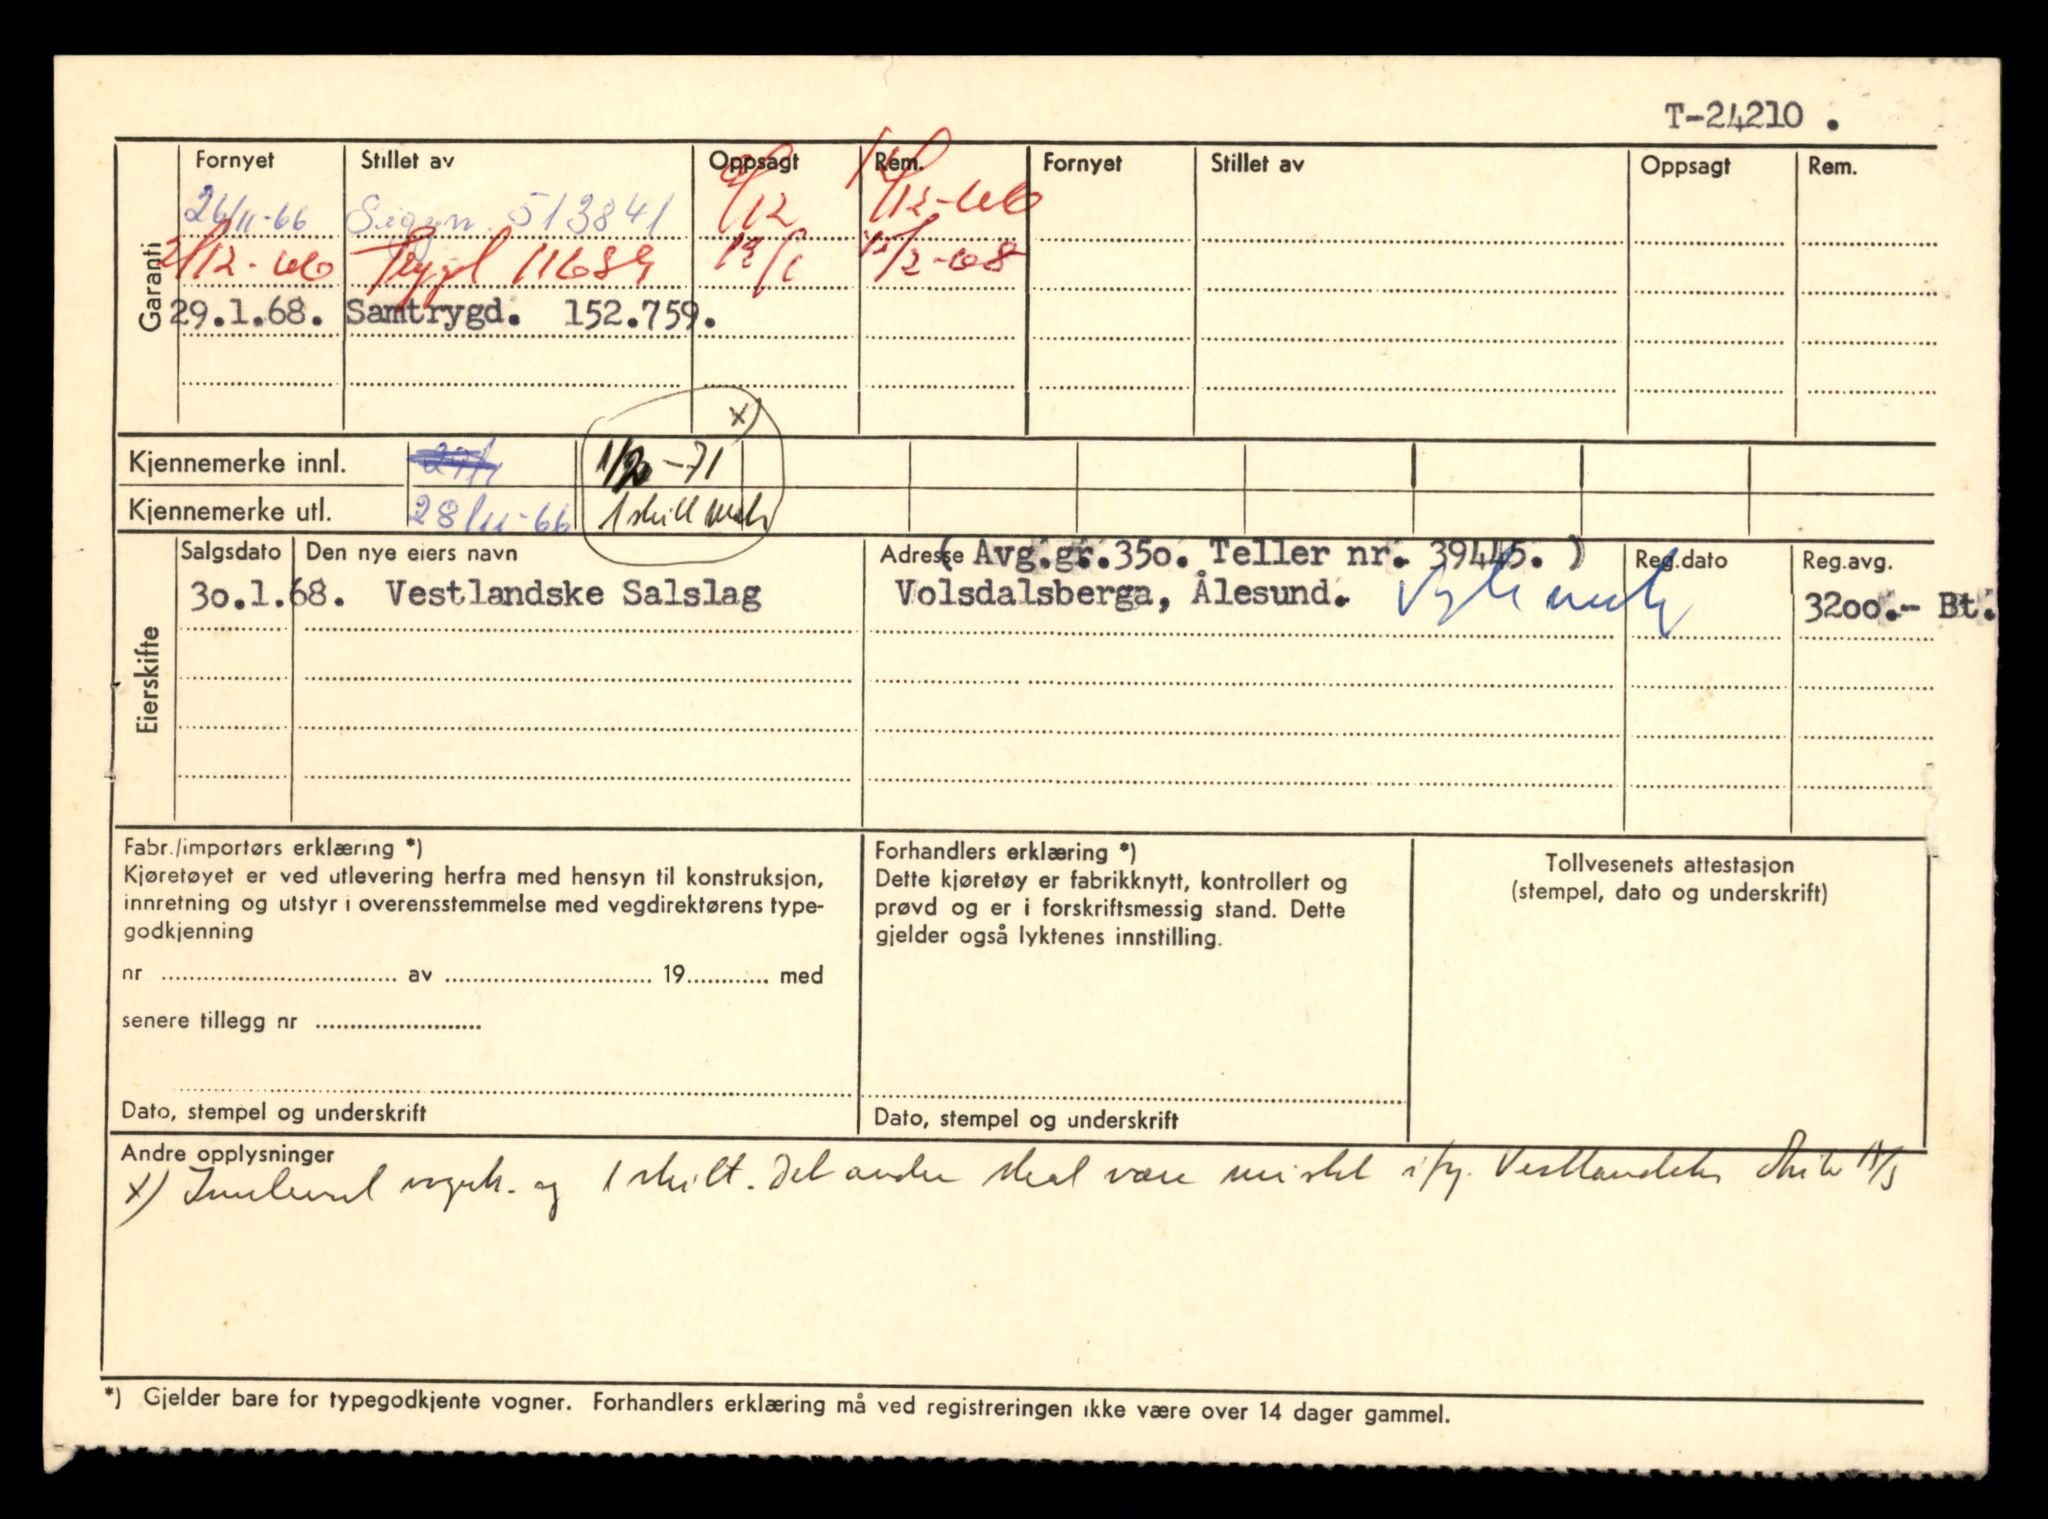 T-24210 .
Garanti
Fornyet Stillet av Oppsagt Rem. Fornyet Stillet av Oppsagt Rem.
26/11-66 Sigyn 513841 /12 /12-66
2/12-66 Trygd 11689 /1 15/2-68
29.1.68. Samtrygd. 152.759.
x)
Kjennemerke innl. -71
Kjennemerke utl. 28/11-66 1 skilt
Eierskifte
Salgsdato Den nye eiers navn Adresse ( Avg.gr.35o. Teller nr. 39445. ) Reg.dato Reg.avg.
3o.1.68. Vestlandske Salslag Volsdalsberga, Ålesund. 32oo.- Bt.
Fabr./importørs erklæring *)
Kjøretøyet er ved utlevering herfra med hensyn til konstruksjon,
innretning og utstyr i overensstemmelse med vegdirektørens type-
godkjenning
nr av 19 med
senere tillegg nr
Dato, stempel og underskrift
Forhandlers erklæring *)
Dette kjøretøy er fabrikknytt, kontrollert og
prøvd og er i forskriftsmessig stand. Dette
gjelder også lyktenes innstilling.
Dato, stempel og underskrift
Tollvesenets attestasjon
(stempel, dato og underskrift)
Andre opplysninger
x) Innlevert vognk. og 1 skilt. Det andre skal være mistet i flg. Vestlandske
*) Gjelder bare for typegodkjente vogner. Forhandlers erklæring må ved registreringen ikke være over 14 dager gammel.